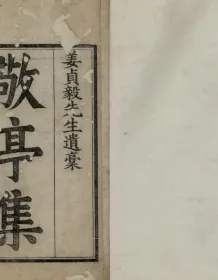 姜貞毅先生遺稾
敬亭集